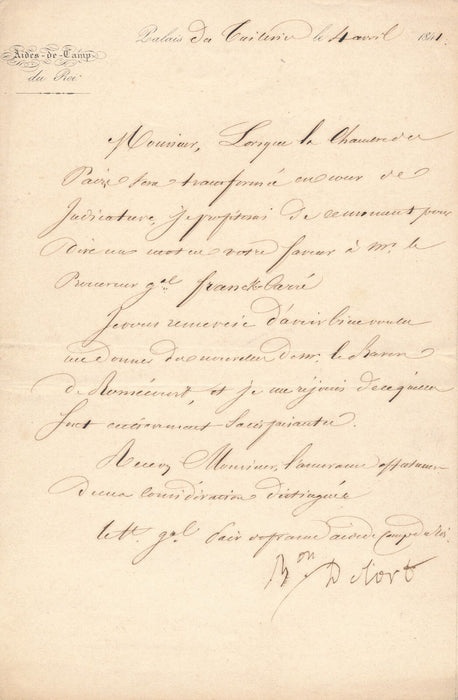 Palais des Tuileries le 4 avril 1841.
Aides-de-Camp
du Roi
Monsieur, Lorsque la Chambre des
Pairs sera transformée en cour de
Judicature, je profiterai de ce moment pour
dire un mot en votre faveur à Mr. le
Procureur gal. franck-Carré
Je vous remercie d'avoir bien voulu
me donner des nouvelles de mr. le Baron
de et je me réjouis de ce qu'elles
sont entièrement satisfaisantes.
Recevez Monsieur, l'assurance
de ma considération distinguée
le Lt. gal. Pair de france aide de Camp du Roi.
Bon Delort